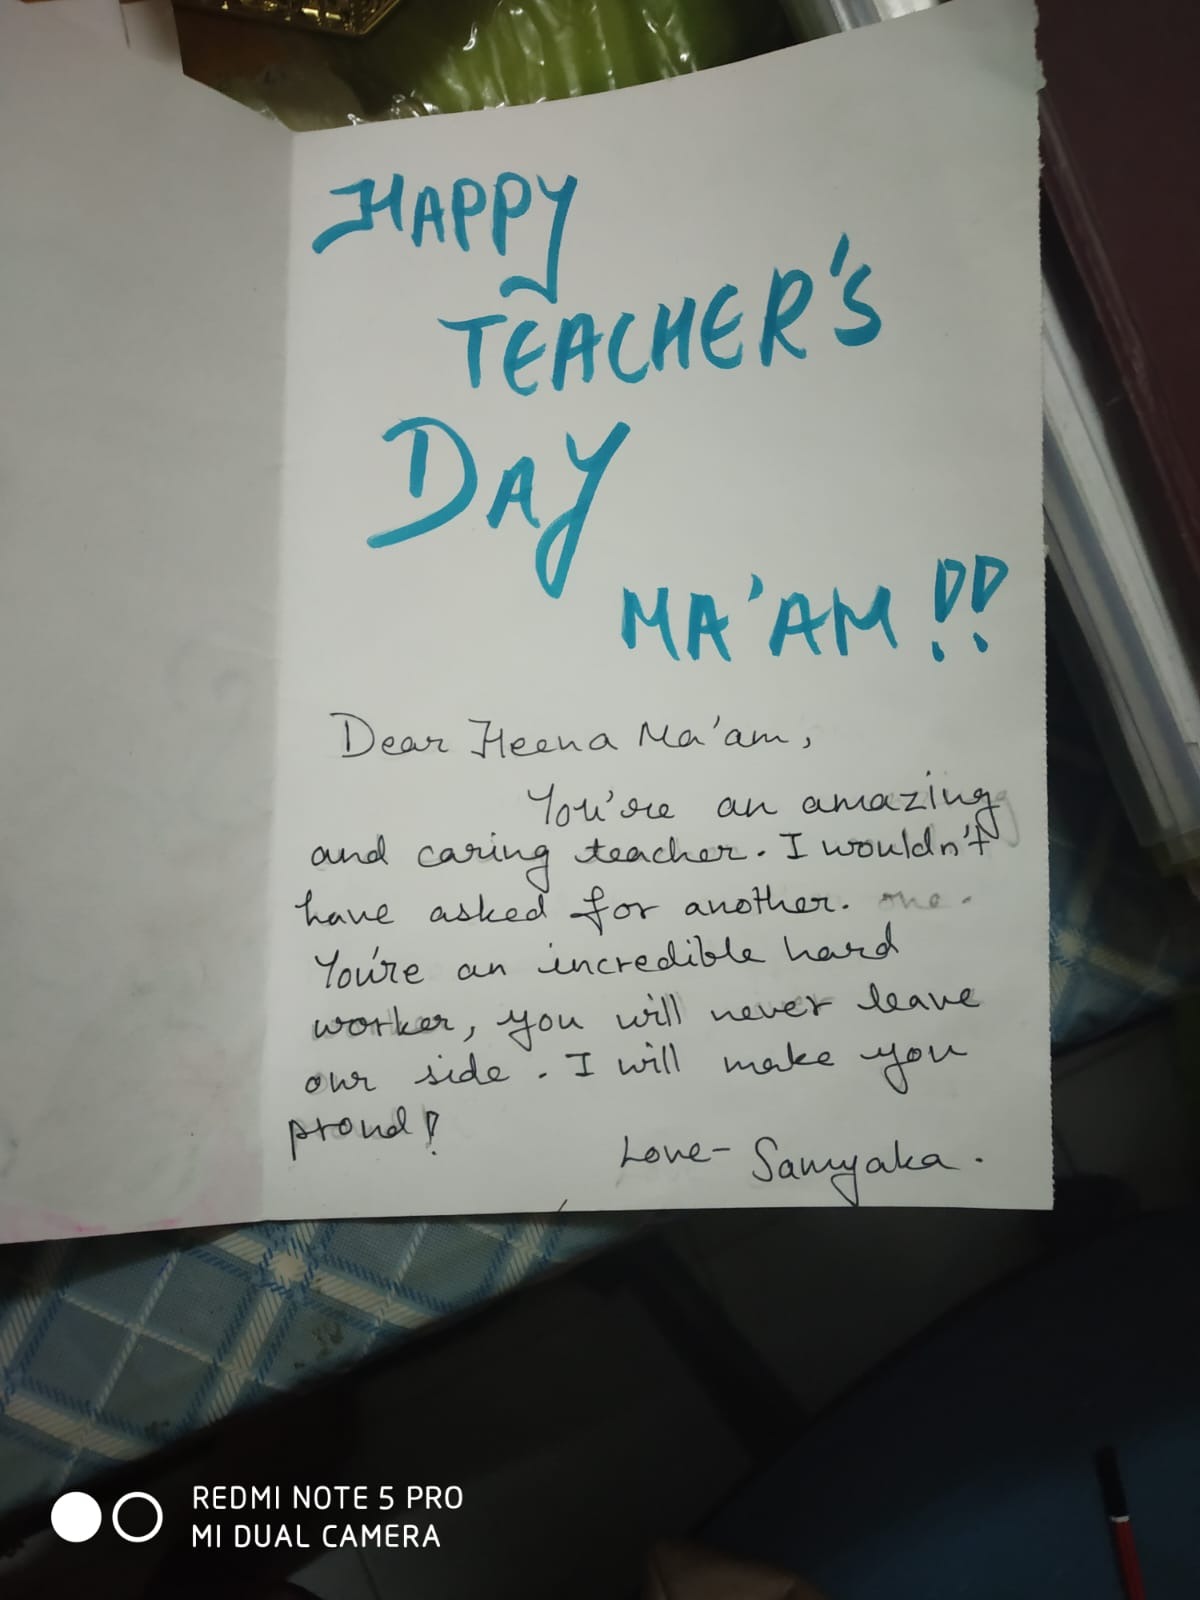 HAPPY
TEACHER'S
DAY
MA'AM!!
Dear Heena Ma'am,
You're an amazing
and caring teacher. I wouldn't
have asked for another. one.
You're an incredible hard
worker, you will never leave
our side. I will make you
proud!
Love- Samyaka.
REDMI NOTE 5 PRO
MI DUAL CAMERA